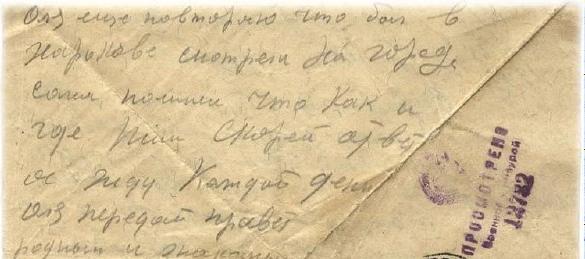 Оля еще повторяю что был в
Харькове смотрел на город,
сама помнишь что как и
где Пиши Скорей отве
я жду Каждой день
Оля передай привет
родным и знакомым
ПРОСМОТРЕНО
Военной Цензурой
12782